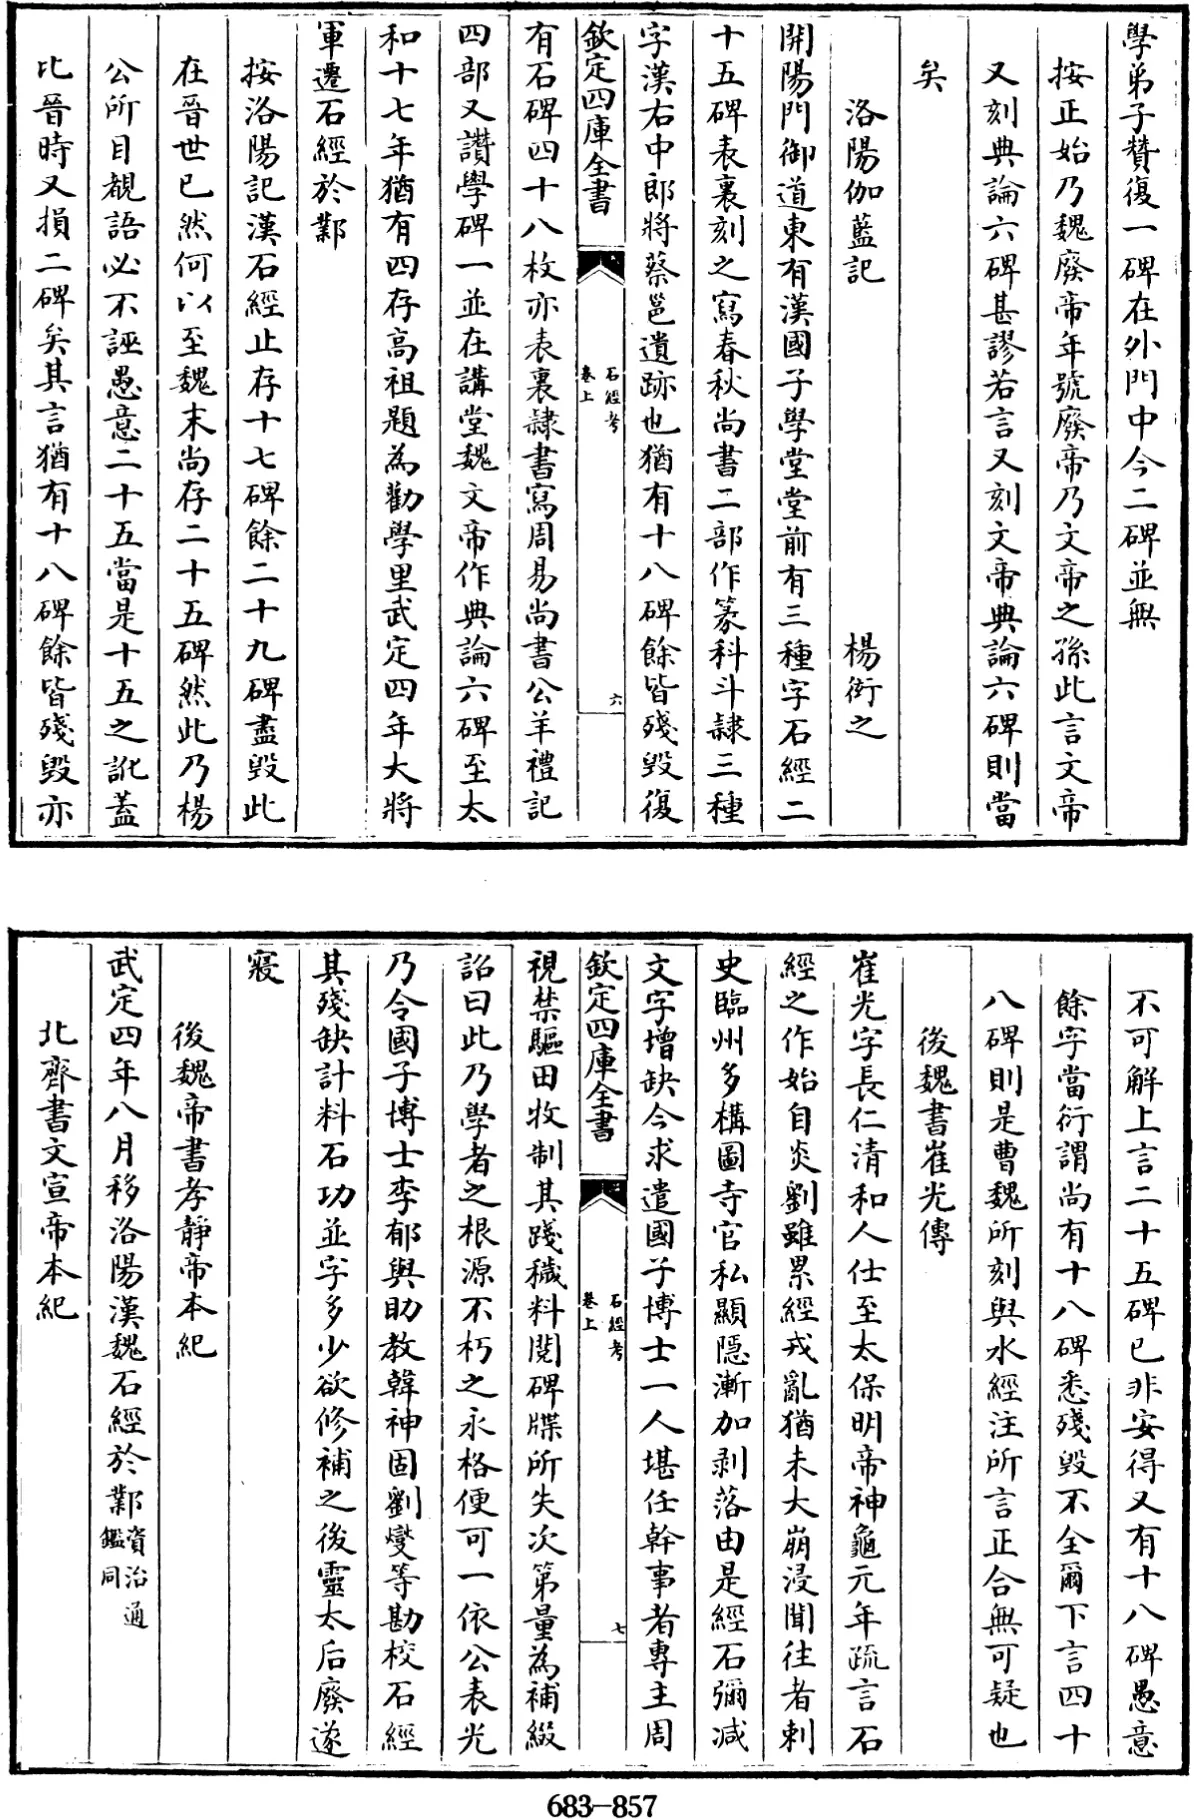 學弟子贊復一碑在外門中今二碑並無
按正始乃魏廢帝年號廢帝乃文帝之孫此言文帝
又刻典論六碑甚謬若言又刻文帝典論六碑則當
矣
洛陽伽藍記　楊衒之
開陽門御道東有漢國子學堂堂前有三種字石經二
十五碑表裏刻之寫春秋尚書二部作篆科斗隸三種
字漢右中郎將蔡邕遺跡也猶有十八碑餘皆殘毀復
欽定四庫全書
石經考
卷上
六
有石碑四十八枚亦表裏隸書寫周易尚書公羊禮記
四部又讚學碑一並在講堂魏文帝作典論六碑至太
和十七年猶有四存高祖題為勸學里武定四年大將
軍遷石經於鄴
按洛陽記漢石經止存十七碑餘二十九碑盡毀此
在晉世已然何以至魏末尚存二十五碑然此乃楊
公所目覩語必不誣愚意二十五當是十五之訛蓋
比晉時又損二碑矣其言猶有十八碑餘皆殘毀亦
不可解上言二十五碑已非安得又有十八碑愚意
餘字當衍謂尚有十八碑悉殘毀不全爾下言四十
八碑則是曹魏所刻與水經注所言正合無可疑也
後魏書崔光傳
崔光字長仁清和人仕至太保明帝神龜元年疏言石
經之作始自炎劉雖累經戎亂猶未大崩浸聞往者刺
史臨州多構圖寺官私顯隱漸加剥落由是經石彌減
文字增缺今求遣國子博士一人堪任幹事者專主周
欽定四庫全書
石經考
卷上
七
視禁驅田收制其踐穢料閱碑牒所失次第量為補綴
詔曰此乃學者之根源不朽之永格便可一依公表光
乃令國子博士李郁與助教韓神固劉燮等勘校石經
其殘缺計料石功並字多少欲修補之後靈太后廢遂
寢
後魏帝書孝靜帝本紀
武定四年八月移洛陽漢魏石經於鄴資治通鑑同
北齊書文宣帝本紀
683—857